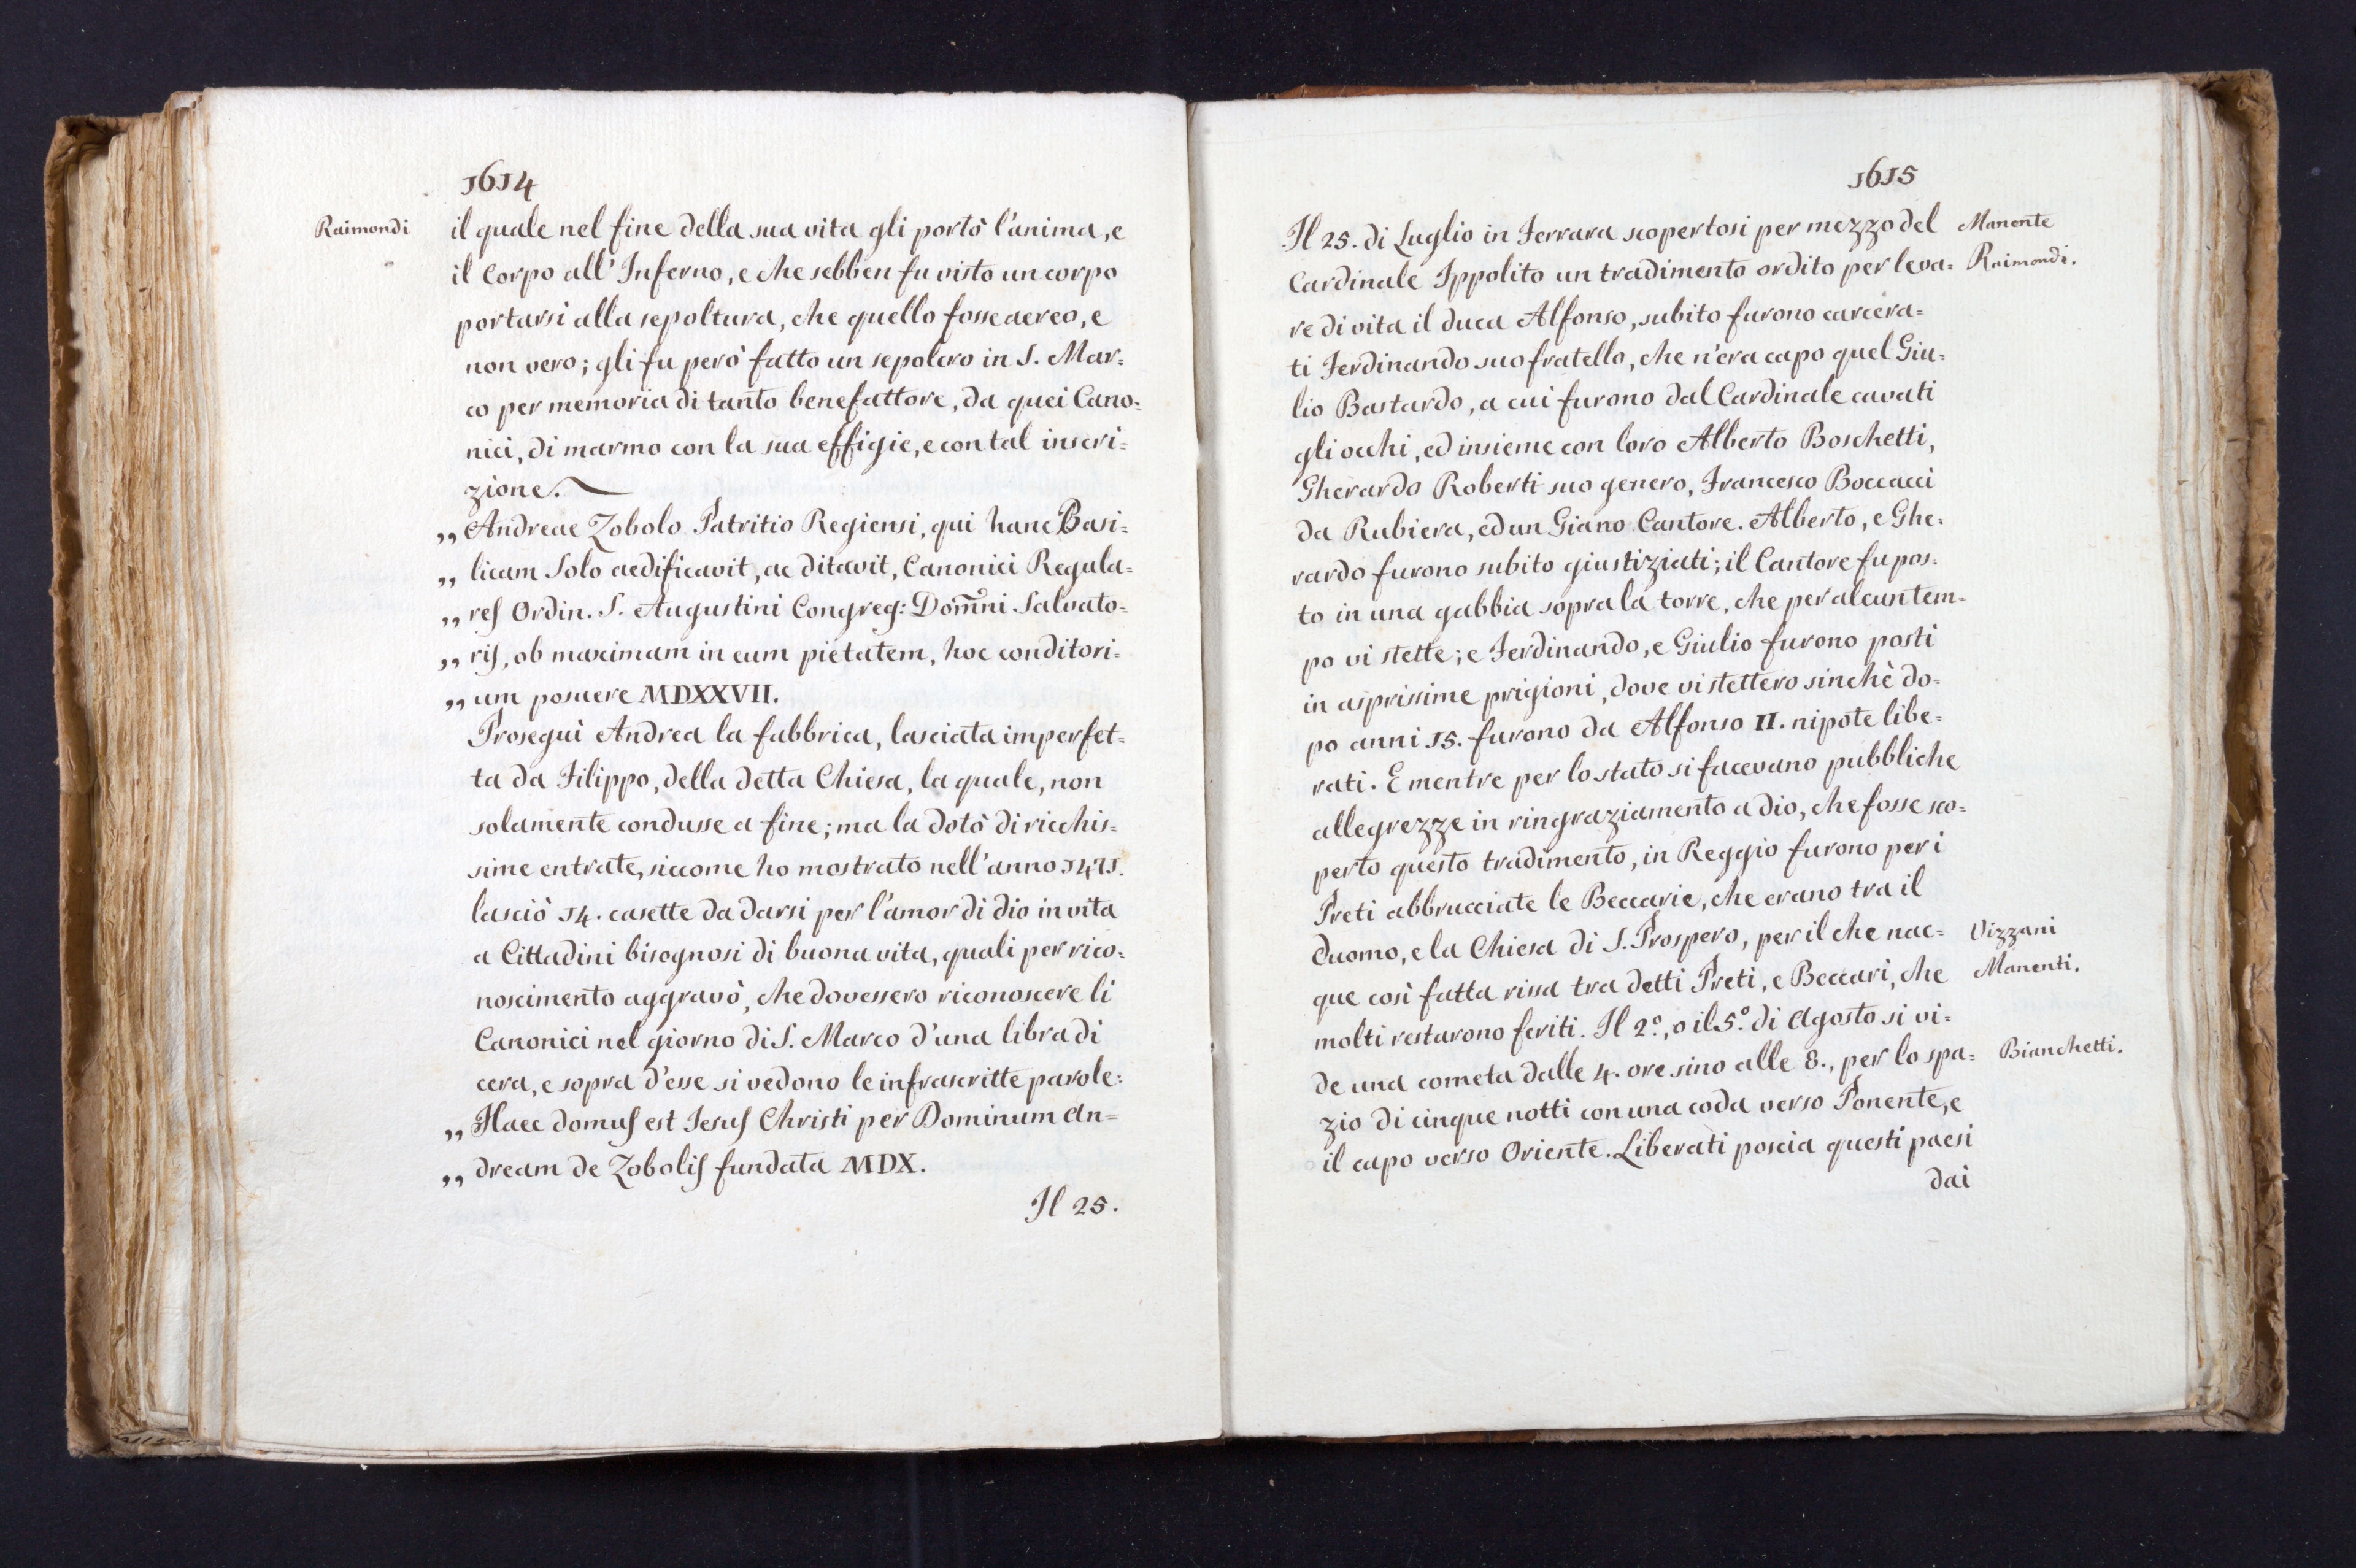 1614
Raimondi
il quale nel fine della sua vita gli portò l'anima, e
il Corpo all' Inferno, e che sebben fu visto un corpo
portarsi alla sepoltura, che quello fosse aereo, e
non vero; gli fu però fatto un sepolcro in S. Mar=
co per memoria di tanto benefattore, da quei Cano=
nici, di marmo con la sua effigie, e con tal inscri=
zione.
„ Andreae Zobolo Patritio Regiensi, qui hanc Basi=
„ licam Solo aedificavit, ac ditavit, Canonici Regula=
„ res Ordin. S. Augustini Congreg: Dom̃ni Salvato=
„ ris, ob maximam in eum pietatem, hoc conditori=
„ um posuere MDXXVII.
Proseguì Andrea la fabbrica, lasciata imperfet=
ta da Filippo, della detta Chiesa, la quale, non
solamente condusse a fine; ma la dotò di ricchis=
sime entrate, siccome ho mostrato nell'anno 1471.
lasciò 14. casette da darsi per l'amor di dio in vita
a Cittadini bisognosi di buona vita, quali per rico=
noscimento aggravò, che dovessero riconoscere li
Canonici nel giorno di S. Marco d'una libra di
cera, e sopra d'esse si vedono le infrascritte parole:
„ Haec domus est Jesus Christi per Dominum An=
„ dream de Zobolis fundata MDX.
Il 25.
1615
Il 25. di Luglio in Ferrara scopertosi per mezzo del
Manente
Cardinale Ippolito un tradimento ordito per leva=
Raimondi.
re di vita il duca Alfonso, subito furono carcera=
ti Ferdinando suo fratello, che n'era capo quel Giu=
lio Bastardo, a cui furono dal Cardinale cavati
gli occhi, ed insieme con loro Alberto Boschetti,
Gherardo Roberti suo genero, Francesco Boccacci
da Rubiera, ed un Giano Cantore. Alberto, e Ghe=
rardo furono subito giustiziati; il Cantore fu pos=
to in una gabbia sopra la torre, che per alcun tem=
po vi stette; e Ferdinando, e Giulio furono posti
in asprissime prigioni, dove vi stettero sinchè do=
po anni 15. furono da Alfonso II. nipote libe=
rati. E mentre per lo stato si facevano pubbliche
allegrezze in ringraziamento a dio, che fosse sco=
perto questo tradimento, in Reggio furono per i
Preti abbrucciate le Beccarie, che erano tra il
duomo, e la Chiesa di S. Prospero, per il che nac=
Vizzani
que così fatta rissa tra detti Preti, e Beccari, che
Manenti.
molti restarono feriti. Il 2º, o il 5º di Agosto si vi=
de una cometa dalle 4. ore sino alle 8., per lo spa=
Bianchetti.
zio di cinque notti con una coda verso Ponente, e
il capo verso Oriente. Liberati poscia questi paesi
dai